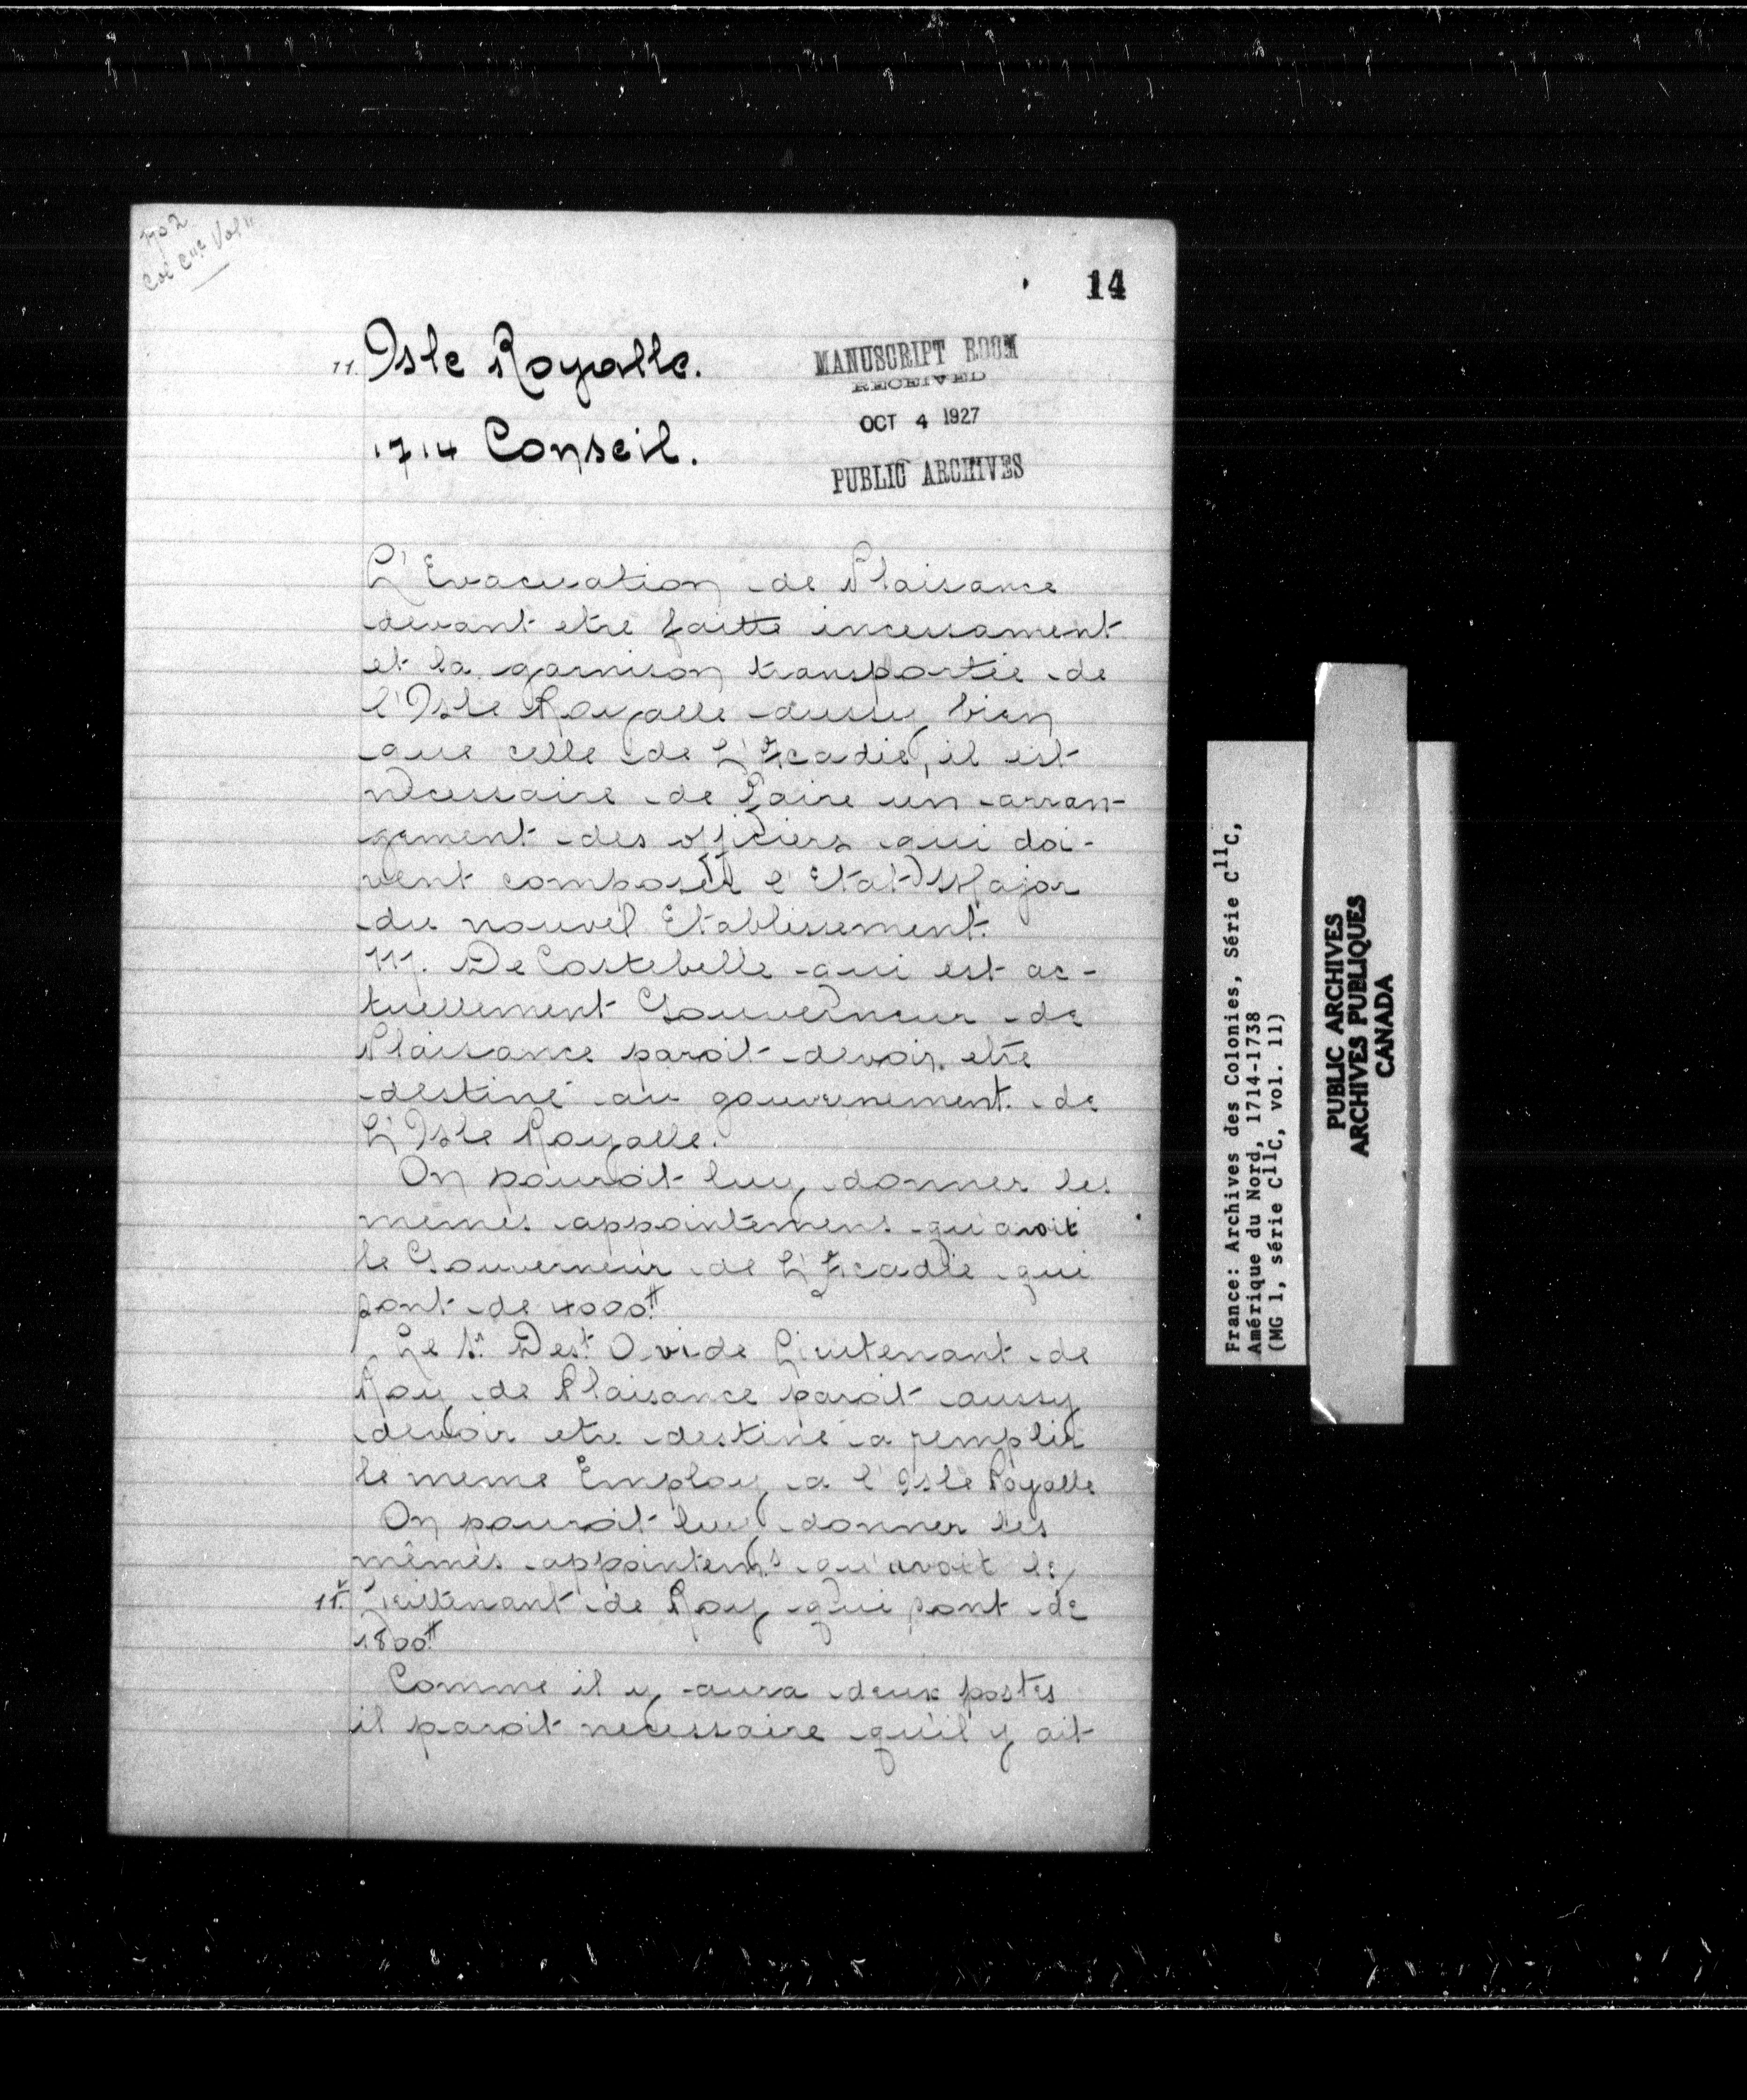 Col C11c Vol 11
14
11. Isle Royalle.
1714 Conseil.
MANUSCRIPT ROOM
RECEIVED
OCT 4 1927
PUBLIC ARCHIVES
L'Evacuation de Plaisance
devant etre faitte incessament
et la garnison transportée de
l'Isle Royalle aussy bien
que celle de L'Acadie, il est
necessaire de faire un arran-
gement des officiers qui doi-
vent composer l'Etat Major
du nouvel Etablissement.
M. De Costebelle qui est ac-
tuellement Gouverneur de
Plaisance paroit devoir etre
destiné au gouvernement de
L'Isle Royalle.
On pouroit luy donner les
memes appointemens qu'avoit
le Gouverneur de L'Acadie qui
sont de 4000ᵗᵗ
Le Sr. Dest. Ovide Lieutenant de
Roy de Plaisance paroit aussy
devoir etre destiné a remplir
le meme Employ a l'Isle Royalle
On pouroit luy donner les
mêmes appointemˢ qu'avoit le
11ᵛ. Lieutenant de Roy qui sont de
1800ᵗᵗ
Comme il y aura deux postes
il paroit necessaire qu'il y ait
France: Archives des Colonies, Série C11C,
Amérique du Nord, 1714-1738
(MG 1, série C11C, vol. 11)
PUBLIC ARCHIVES
ARCHIVES PUBLIQUES
CANADA